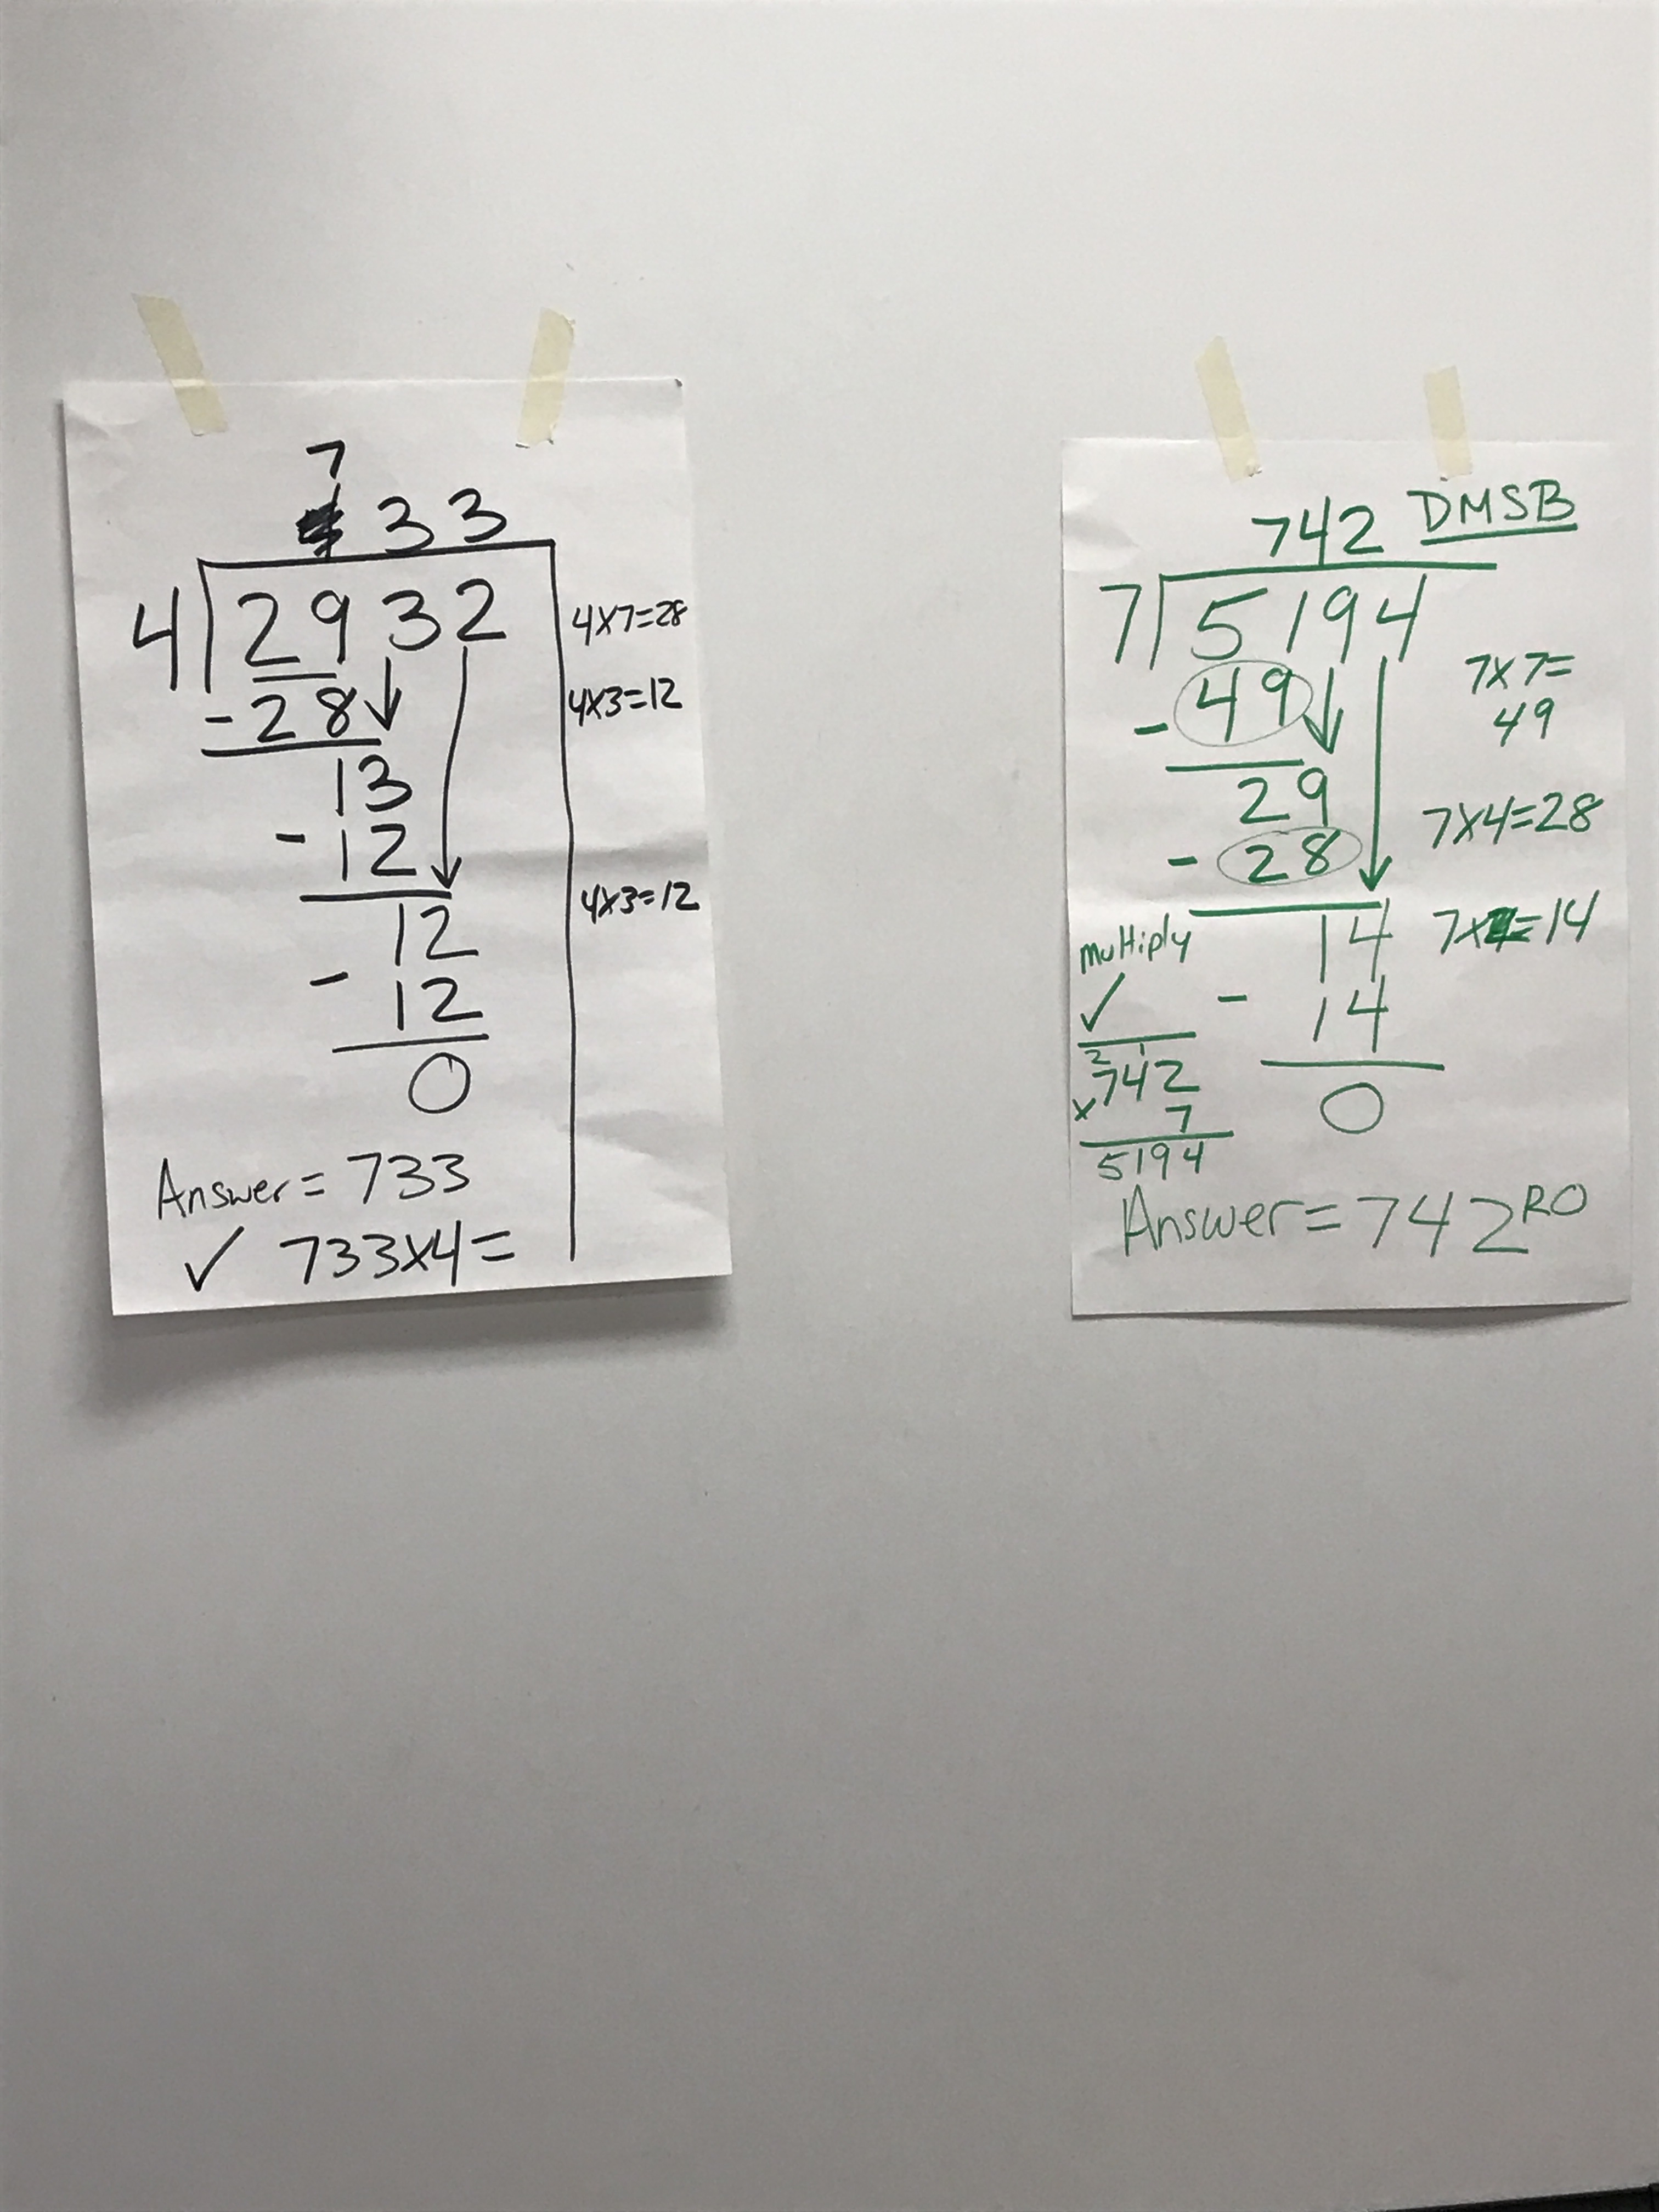 7
33
4 2932
4x7=28
-28
4x3=12
13
-12
4x3=12
12
-12
0
Answer= 733
✓ 733x4=
742 DMSB
7 5194
7x7=
49
-49
29
7x4=28
-28
14
7x =14
-14
0
multiply
✓
2 1
742
x 7
5194
Answer=742 R0